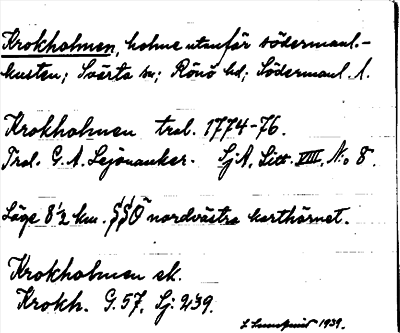 Krokholmen, holme utanför södermanl.-
kusten; Svärta sn; Rönö hd; Södermanl. l.
Krokholmen tral. 1774-76.
Tral. G. A. Lejonanker. SjA, Litt. VIII, No 8.
Läge 8 1/2 km. SSÖ nordvästra karthörnet.
Krokholmen sk.
Krokh. G. 57, Lj: 2/39.
1939.